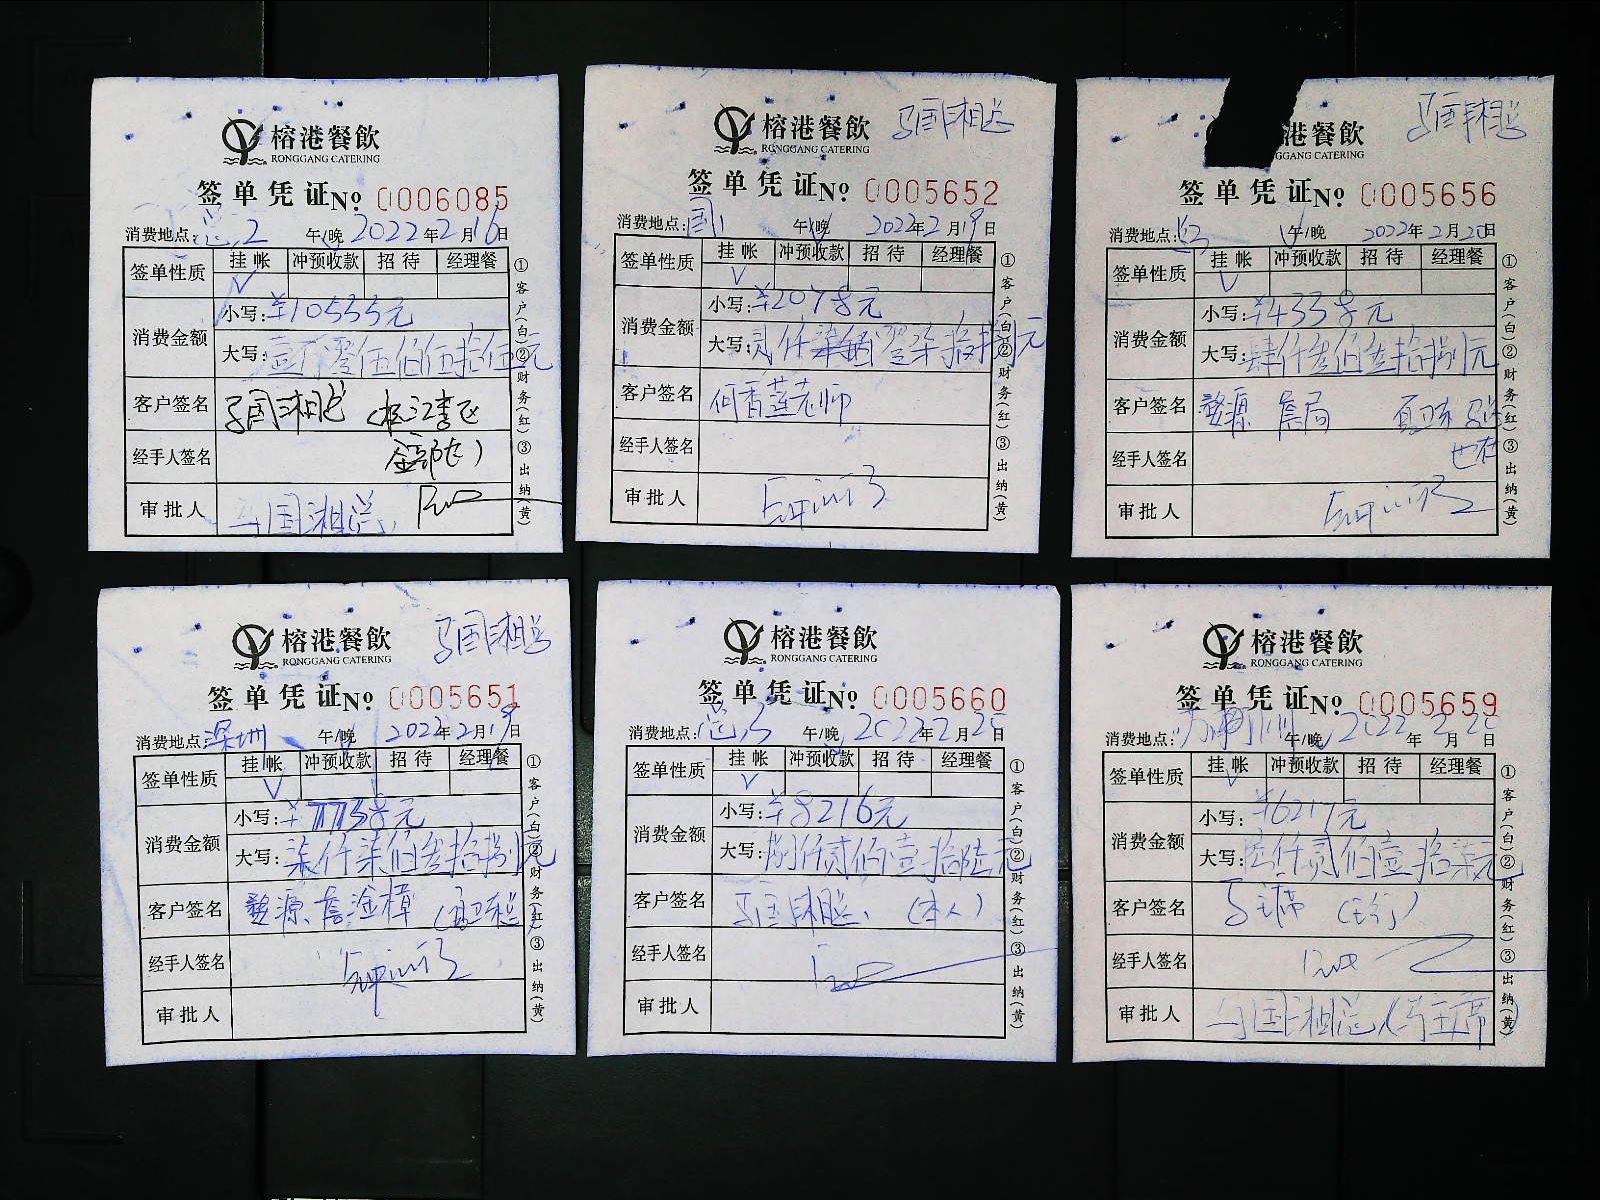 榕港餐飲
RONGGANG CATERING
签单凭证№ 0006085
消费地点: 总2 午/晚 2022年2月16日
签单性质 挂帐 冲预收款 招待 经理餐
✓
消费金额 小写: ¥10555元
大写: 壹万零伍佰伍拾伍元
客户签名 马国湘总
经手人签名
审批人 马国湘总
①客户(白)②财务(红)③出纳(黄)
榕港餐飲 马国湘总
RONGGANG CATERING
签单凭证№ 0005652
消费地点: 国1 午/晚 2022年2月19日
签单性质 挂帐 冲预收款 招待 经理餐
✓
消费金额 小写: ¥2078元
大写: 贰仟零柒拾捌元
客户签名 何香莲老师
经手人签名
审批人
①客户(白)②财务(红)③出纳(黄)
港餐飲 马国湘总
RONGGANG CATERING
签单凭证№ 0005656
消费地点: 总3 午/晚 2022年2月20日
签单性质 挂帐 冲预收款 招待 经理餐
✓
消费金额 小写: ¥4338元
大写: 肆仟叁佰叁拾捌元
客户签名 婺源 詹局
经手人签名 也在
审批人
①客户(白)②财务(红)③出纳(黄)
榕港餐飲 马国湘总
RONGGANG CATERING
签单凭证№ 0005651
消费地点: 深圳 午/晚 2022年2月19日
签单性质 挂帐 冲预收款 招待 经理餐
✓
消费金额 小写: ¥7738元
大写: 柒仟柒佰叁拾捌元
客户签名 婺源 詹淦樟
经手人签名
审批人
①客户(白)②财务(红)③出纳(黄)
榕港餐飲
RONGGANG CATERING
签单凭证№ 0005660
消费地点: 总3 午/晚 2022年2月25日
签单性质 挂帐 冲预收款 招待 经理餐
✓
消费金额 小写: ¥8216元
大写: 捌仟贰佰壹拾陆元
客户签名 马国湘总 (本人)
经手人签名
审批人
①客户(白)②财务(红)③出纳(黄)
榕港餐飲
RONGGANG CATERING
签单凭证№ 0005659
消费地点: 午/晚 2022年2月25日
签单性质 挂帐 冲预收款 招待 经理餐
✓
消费金额 小写: ¥6217元
大写: 陆仟贰佰壹拾柒元
客户签名 马主席
经手人签名
审批人 马国湘总(马主席)
①客户(白)②财务(红)③出纳(黄)